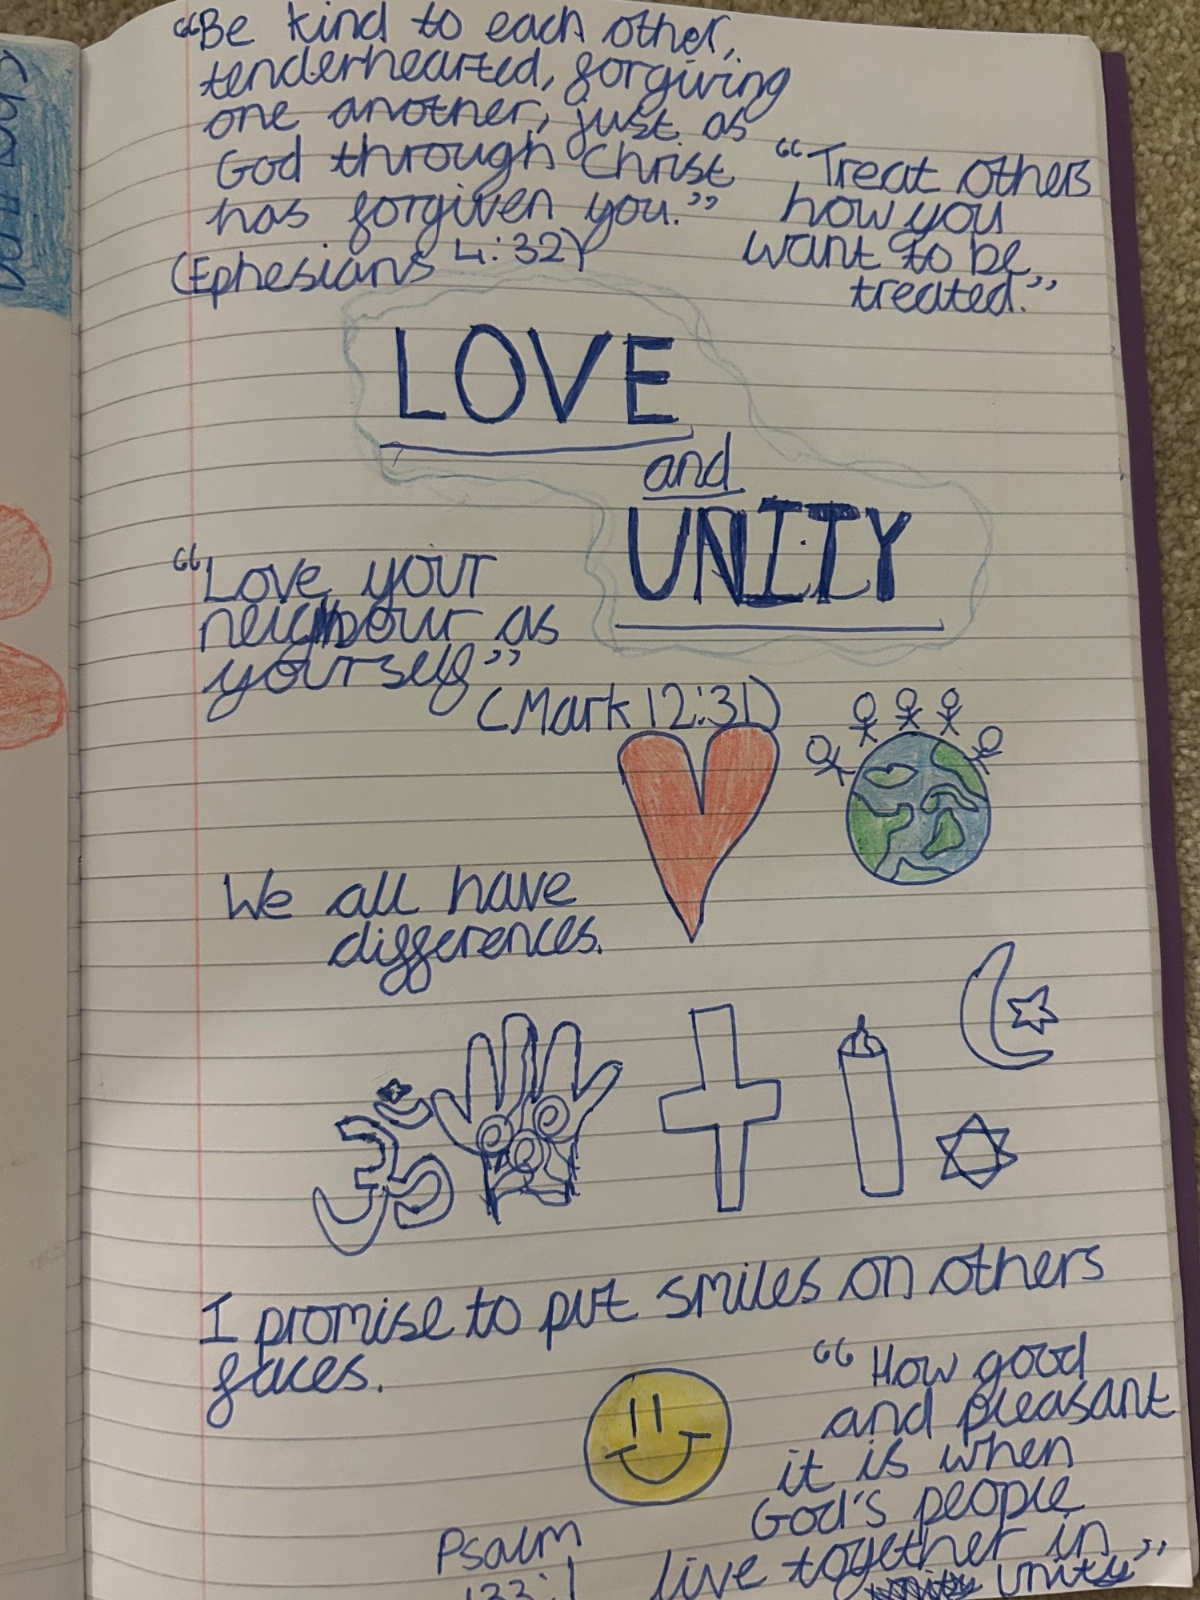 “Be kind to each other,
tenderhearted, forgiving
one another, just as
God through Christ
has forgiven you.”
(Ephesians 4:32)
“Treat others
how you
want to be
treated.”
LOVE
and
UNITY
“Love your
neighbour as
yourself”
(Mark 12:31)
We all have
differences.
I promise to put smiles on others
faces.
“How good
and pleasant
it is when
God's people
live together in
unity”
Psalm
133:1